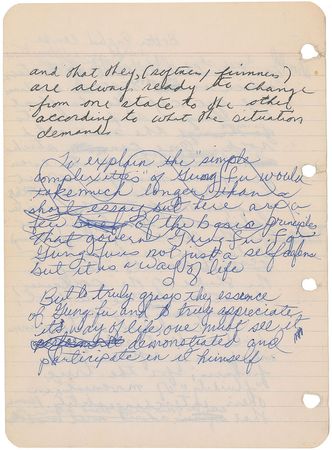 and that they, (softness/ firmness)
are always ready to change
from one state to the other
according to what the situation
demands
To explain the "simple
complexities" of Gung Fu would
take much longer than a
short essay but here are a
few of the basic principles
that govern Gung Fu, for
Gung fu is not just a self defense
but it is a way of life
But to truly grasp the essence
of Gung fu and to truly appreciate
its way of life, one must see it
demonstrated and
participate in it himself.